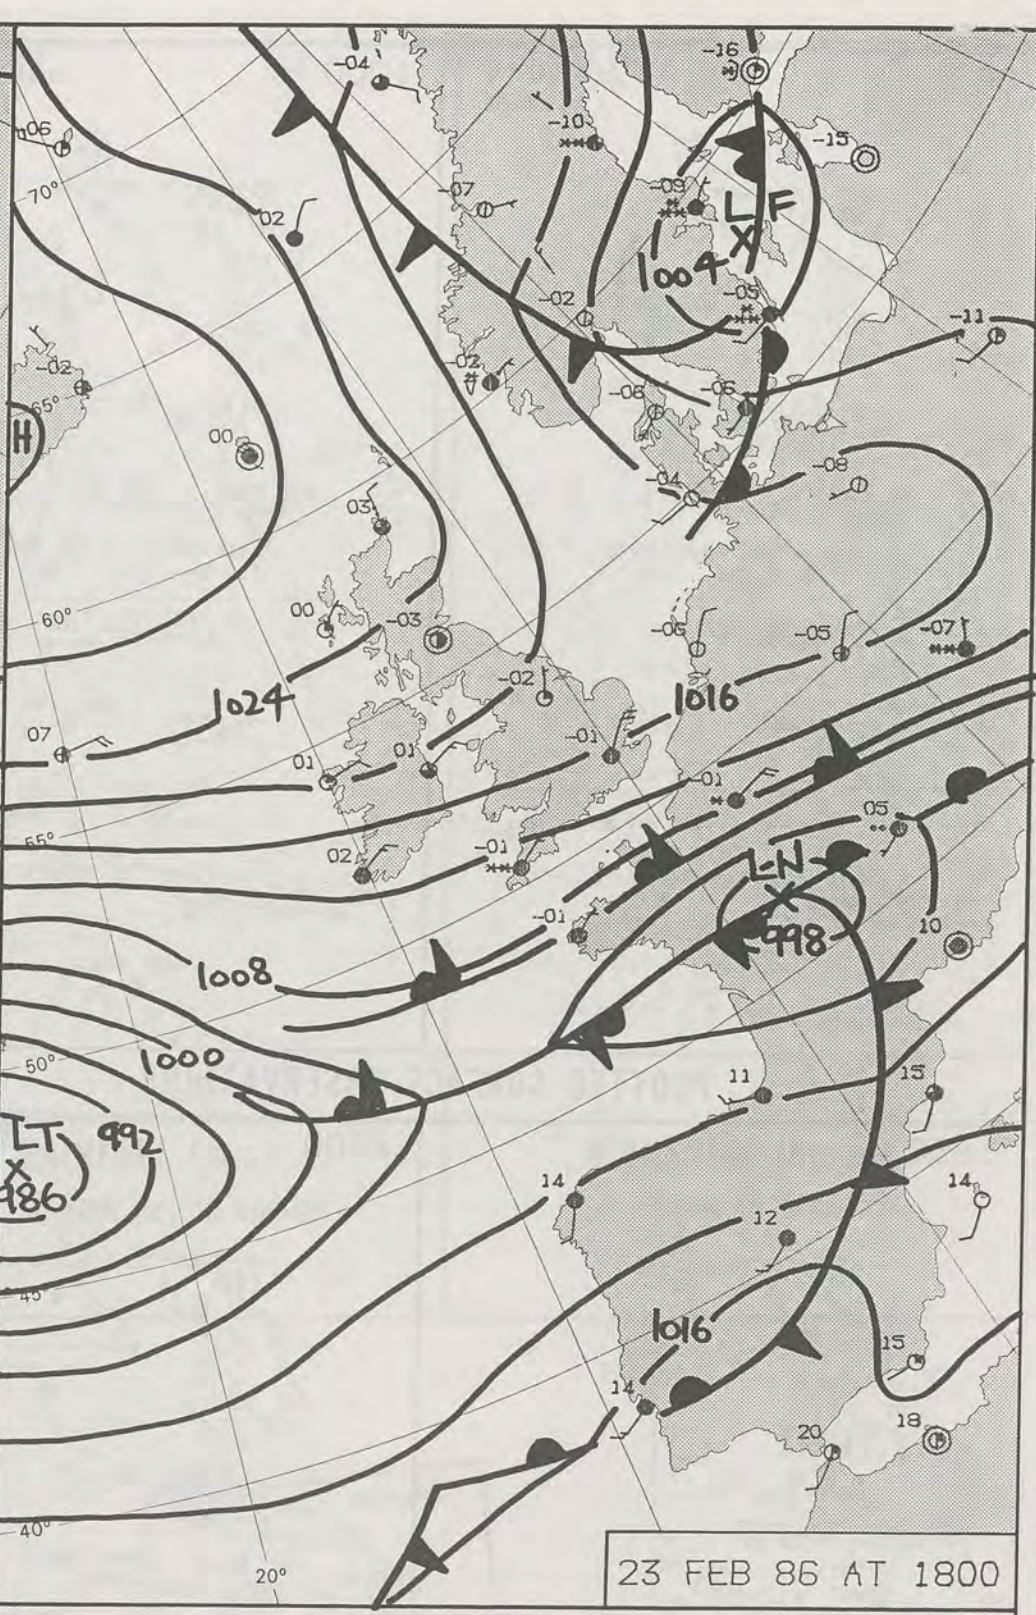 -04
-16
06
-10
-15
70°
-07
-09
L F
X
02
1004
-05
-02
-11
-02
-02
65°
-08
-06
H
00
-04
-08
03
60°
00
-03
-06
-05
-07
-02
1024
1016
07
01
01
-01
-01
55°
05
02
-01
L N
X
-01
998
10
1008
50°
1000
11
15
LT
X
986
992
14
14
12
45°
1016
15
14
20
18
40°
20°
23 FEB 86 AT 1800